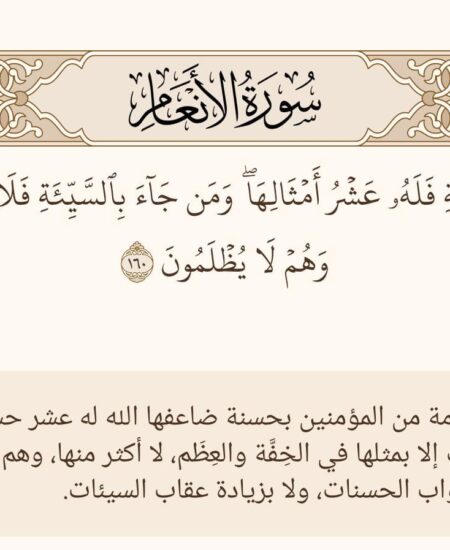 سُورَةُ الأَنْعَامِ
فَلَهُۥ عَشْرُ أَمْثَالِهَاۖ وَمَن جَآءَ بِٱلسَّيِّئَةِ فَلَا
وَهُمْ لَا يُظْلَمُونَ ١٦٠
من المؤمنين بحسنة ضاعفها الله له عشر
إلا بمثلها في الخِفَّة والعِظَم، لا أكثر منها، وهم
الحسنات، ولا بزيادة عقاب السيئات.